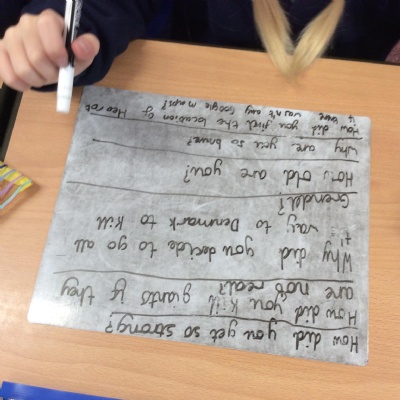 How did you get so strong?
How did you kill giants if they
are not real?
Why did you decide to go all
way to Denmark to kill
Grendel?
How old are you?
Why are you so brave?
How did you find the location of Heorot
if wasn't any Google maps?